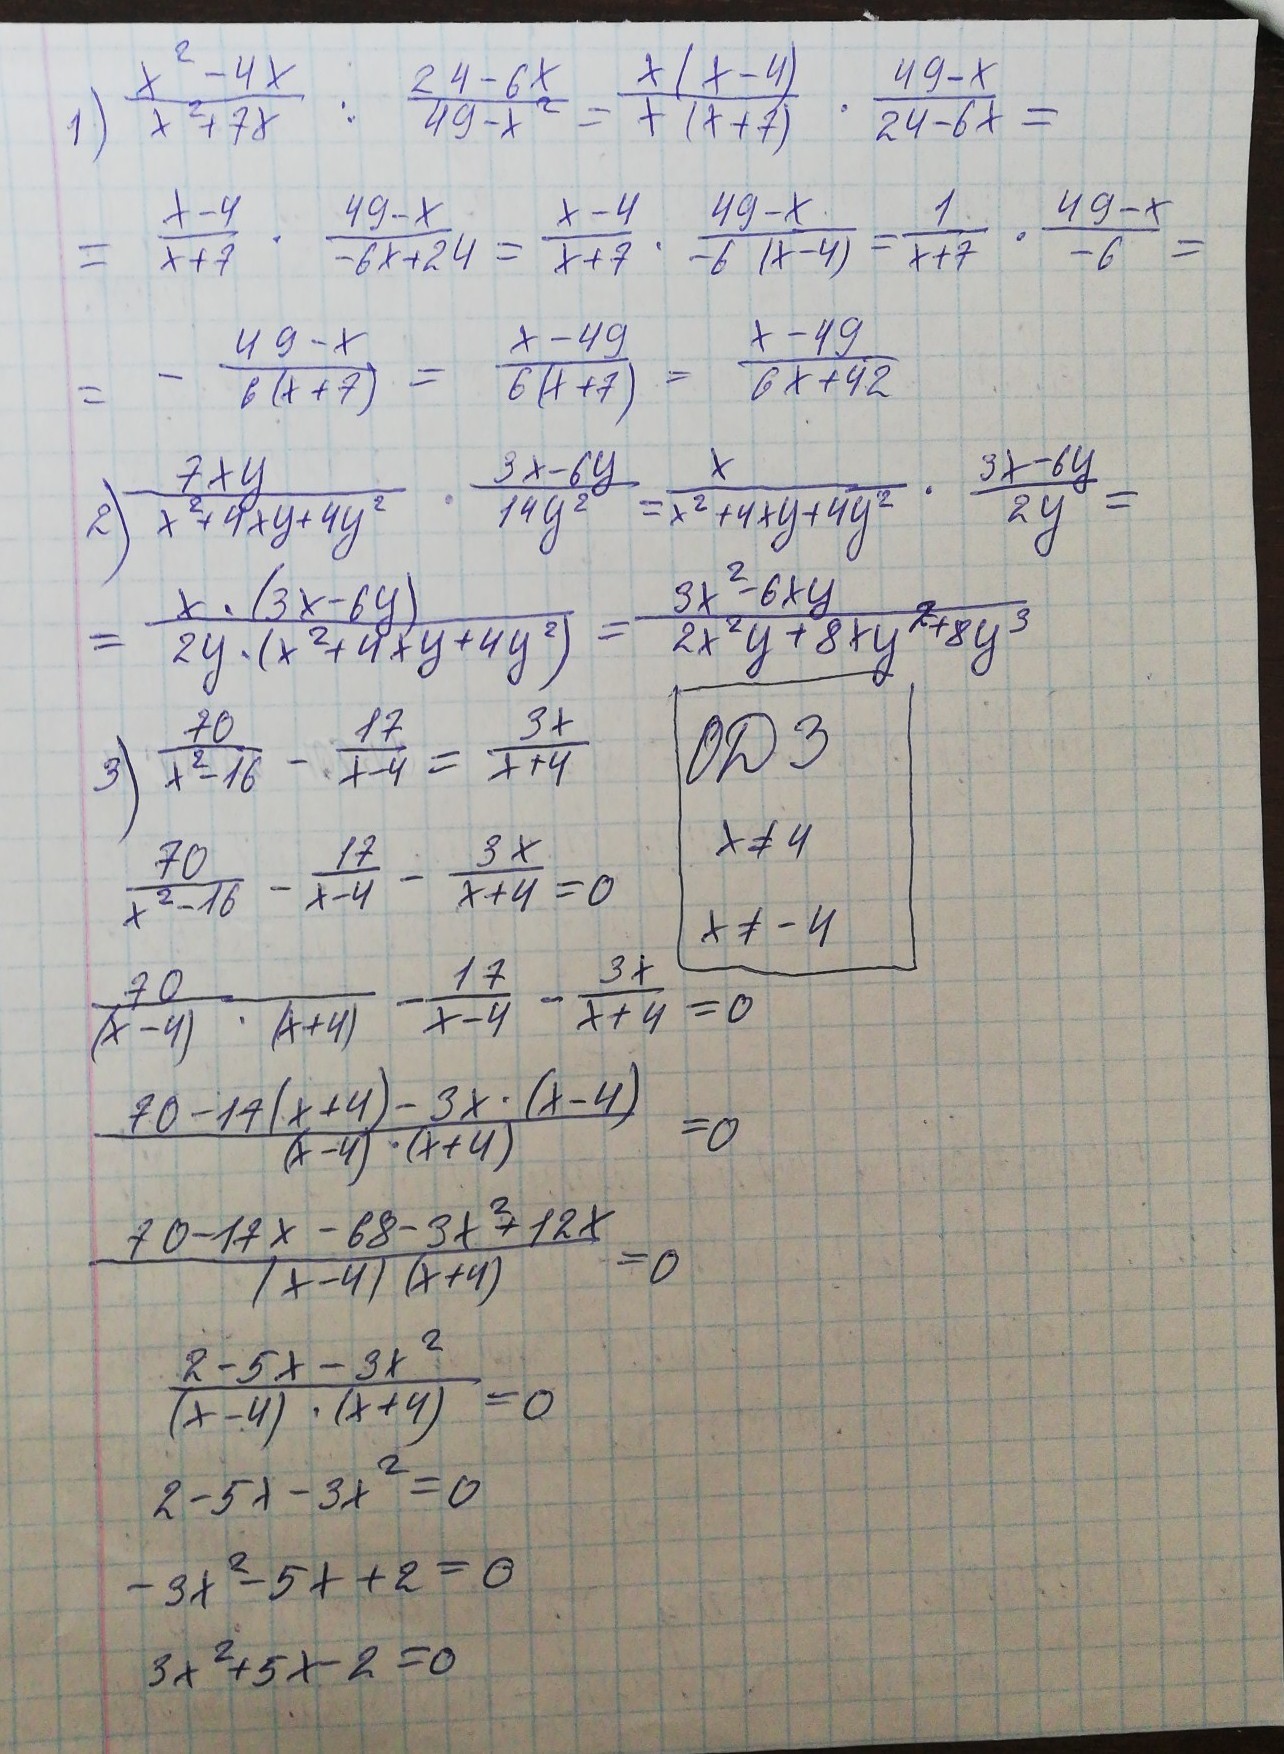 1) (x² - 4x)/(x² + 7x) : (24 - 6x)/(49 - x²) = x(x - 4)/x(x + 7) · (49 - x)/(24 - 6x) =
= (x - 4)/(x + 7) · (49 - x)/(-6x + 24) = (x - 4)/(x + 7) · (49 - x)/(-6(x - 4)) = 1/(x + 7) · (49 - x)/(-6) =
= - (49 - x)/(6(x + 7)) = (x - 49)/(6(x + 7)) = (x - 49)/(6x + 42)
2) 7xy/(x² + 4xy + 4y²) · (3x - 6y)/(14y²) = x/(x² + 4xy + 4y²) · (3x - 6y)/(2y) =
= x · (3x - 6y)/(2y · (x² + 4xy + 4y²)) = (3x² - 6xy)/(2x²y + 8xy² + 8y³)
3) 70/(x² - 16) - 17/(x - 4) = 3x/(x + 4)
ОДЗ
x ≠ 4
x ≠ -4
70/(x² - 16) - 17/(x - 4) - 3x/(x + 4) = 0
70/((x - 4) · (x + 4)) - 17/(x - 4) - 3x/(x + 4) = 0
(70 - 17(x + 4) - 3x · (x - 4))/((x - 4) · (x + 4)) = 0
(70 - 17x - 68 - 3x² + 12x)/((x - 4)(x + 4)) = 0
(2 - 5x - 3x²)/((x - 4) · (x + 4)) = 0
2 - 5x - 3x² = 0
-3x² - 5x + 2 = 0
3x² + 5x - 2 = 0